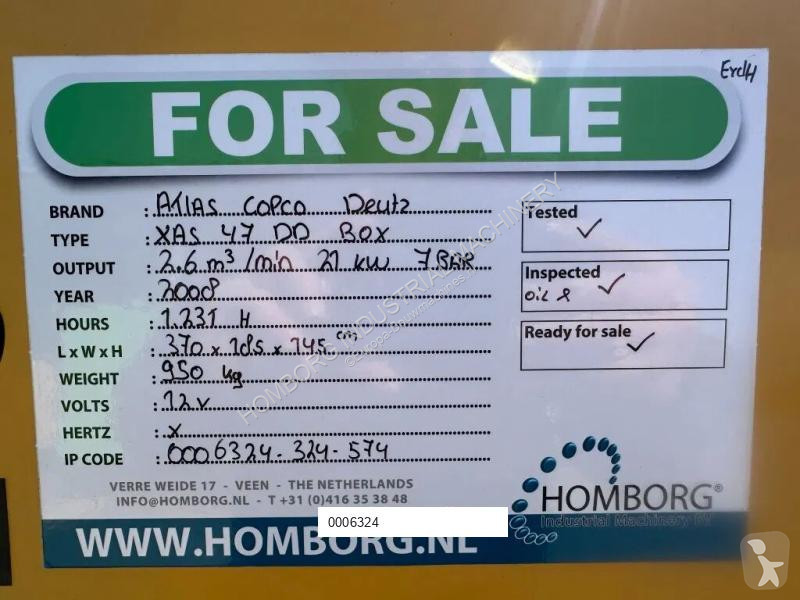 ErdH
FOR SALE
BRAND : ATLAS COPCO Deutz
TYPE : XAS 47 DD BOX
OUTPUT : 2.6 m³/min 21 kW 7 BAR
YEAR : 2008
HOURS : 1.231 H
L x W x H : 370 x 185 x 145 cm
WEIGHT : 950 kg
VOLTS : 12v
HERTZ : x
IP CODE : 0006324-324-574
Tested ✓
Inspected
oil & ✓
Ready for sale ✓
VERRE WEIDE 17 - VEEN - THE NETHERLANDS
INFO@HOMBORG.NL - T +31 (0)416 35 38 48
HOMBORG®
Industrial Machinery BV
0006324
WWW.HOMBORG.NL
HOMBORG INDUSTRIAL MACHINERY